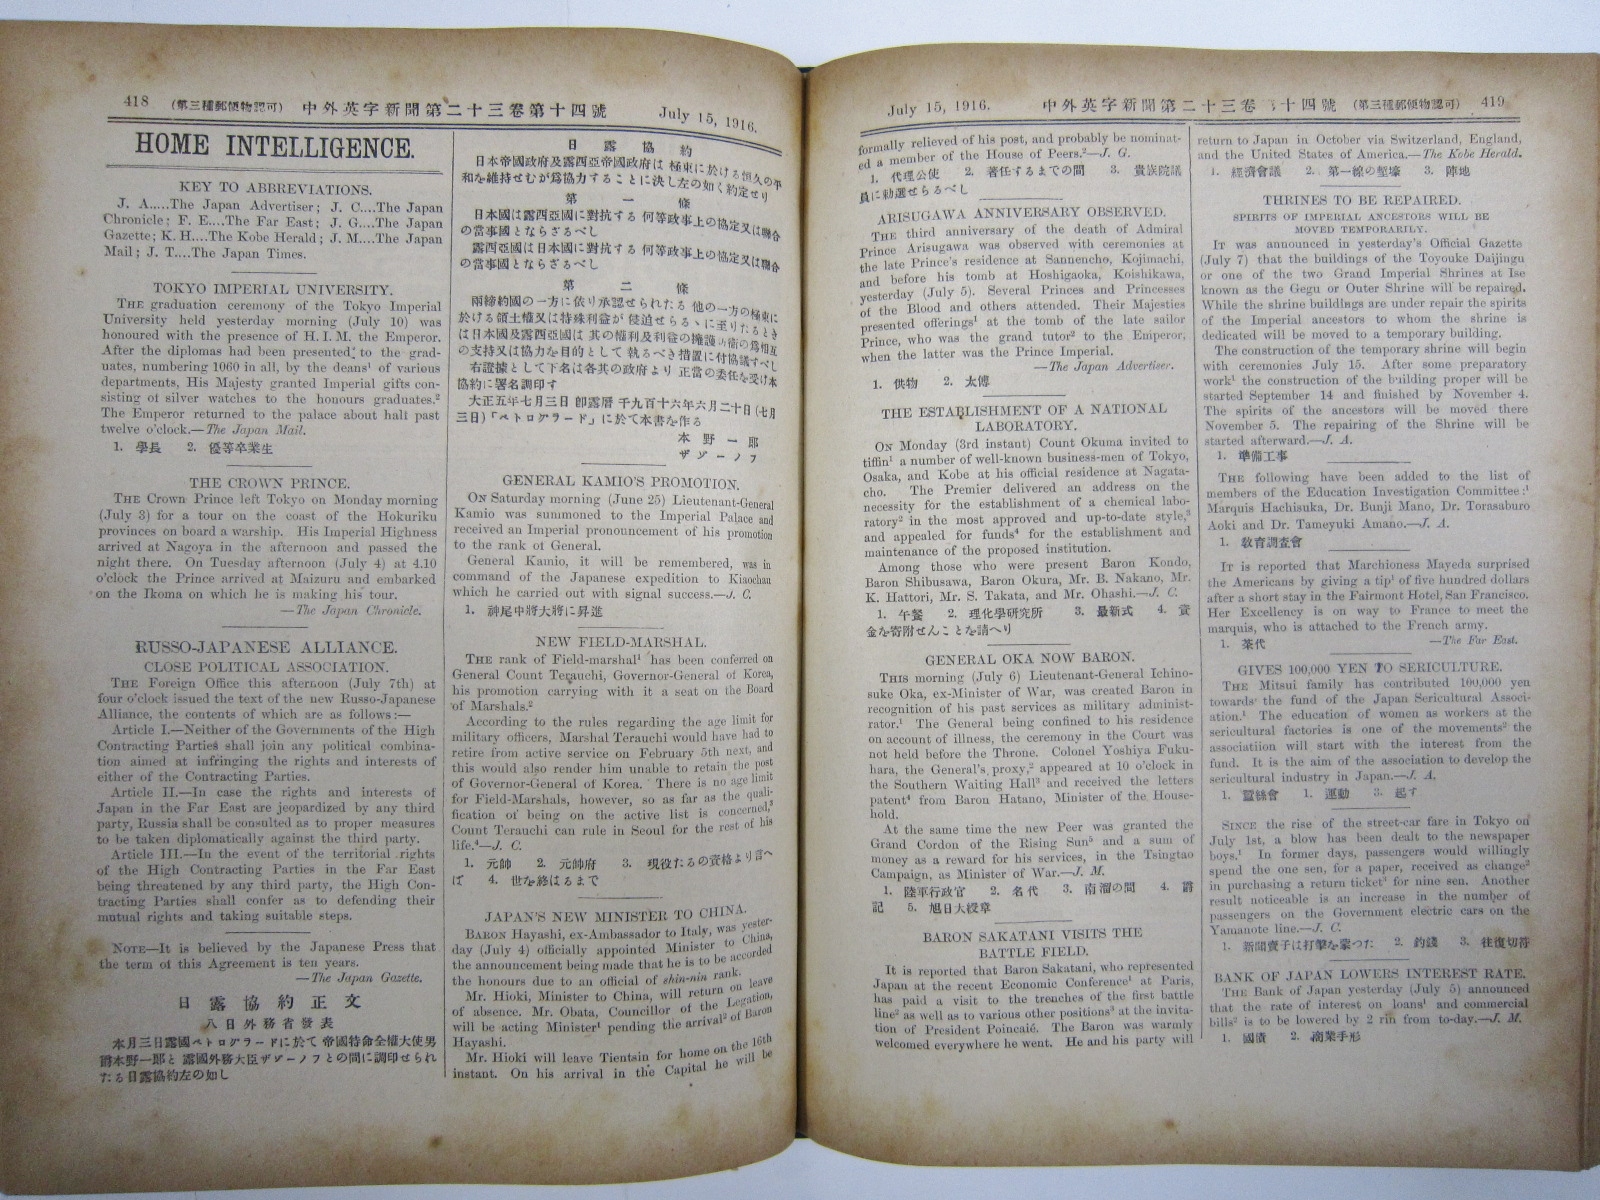 418 (第三種郵便物認可) 中外英字新聞第二十三卷第十四號 July 15, 1916.
HOME INTELLIGENCE.
KEY TO ABBREVIATIONS.
J. A.....The Japan Advertiser; J. C....The Japan
Chronicle; F. E....The Far East; J. G....The Japan
Gazette; K. H....The Kobe Herald; J. M....The Japan
Mail; J. T....The Japan Times.
TOKYO IMPERIAL UNIVERSITY.
THE graduation ceremony of the Tokyo Imperial
University held yesterday morning (July 10) was
honoured with the presence of H. I. M. the Emperor.
After the diplomas had been presented to the grad-
uates, numbering 1060 in all, by the deans¹ of various
departments, His Majesty granted Imperial gifts con-
sisting of silver watches to the honours graduates.²
The Emperor returned to the palace about half past
twelve o'clock.—The Japan Mail.
1. 學長 2. 優等卒業生
THE CROWN PRINCE.
THE Crown Prince left Tokyo on Monday morning
(July 3) for a tour on the coast of the Hokuriku
provinces on board a warship. His Imperial Highness
arrived at Nagoya in the afternoon and passed the
night there. On Tuesday afternoon (July 4) at 4.10
o'clock the Prince arrived at Maizuru and embarked
on the Ikoma on which he is making his tour.
—The Japan Chronicle.
RUSSO-JAPANESE ALLIANCE.
CLOSE POLITICAL ASSOCIATION.
THE Foreign Office this afternoon (July 7th) at
four o'clock issued the text of the new Russo-Japanese
Alliance, the contents of which are as follows:—
Article I.—Neither of the Governments of the High
Contracting Parties shall join any political combina-
tion aimed at infringing the rights and interests of
either of the Contracting Parties.
Article II.—In case the rights and interests of
Japan in the Far East are jeopardized by any third
party, Russia shall be consulted as to proper measures
to be taken diplomatically against the third party.
Article III.—In the event of the territorial rights
of the High Contracting Parties in the Far East
being threatened by any third party, the High Con-
tracting Parties shall confer as to defending their
mutual rights and taking suitable steps.
NOTE—It is believed by the Japanese Press that
the term of this Agreement is ten years.
—The Japan Gazette.
日露協約正文
八日外務省發表
本月三日露國ペトログラードに於て帝國特命全權大使男
爵本野一郎と露國外務大臣ザゾーノフとの間に調印せられ
たる日露協約左の如し
日露協約
日本帝國政府及露西亞帝國政府は極東に於ける恒久の平
和を維持せむが爲協力することに決し左の如く約定せり
第一條
日本國は露西亞國に對抗する何等政事上の協定又は聯合
の當事國とならざるべし
露西亞國は日本國に對抗する何等政事上の協定又は聯合
の當事國とならざるべし
第二條
兩締約國の一方に依り承認せられたる他の一方の極東に
於ける領土權又は特殊利益が侵迫せらるゝに至りたるとき
は日本國及露西亞國は其の權利及利益の擁護防衞の爲相互
の支持又は協力を目的として執るべき措置に付協議すべし
右證據として下名は各其の政府より正當の委任を受け本
協約に署名調印す
大正五年七月三日卽露暦千九百十六年六月二十日(七月
三日)「ペトログラード」に於て本書を作る
本野一郎
ザゾーノフ
GENERAL KAMIO'S PROMOTION.
ON Saturday morning (June 25) Lieutenant-General
Kamio was summoned to the Imperial Palace and
received an Imperial pronouncement of his promotion
to the rank of General.
General Kamio, it will be remembered, was in
command of the Japanese expedition to Kiaochau
which he carried out with signal success.—J. C.
1. 神尾中將大將に昇進
NEW FIELD-MARSHAL.
THE rank of Field-marshal¹ has been conferred on
General Count Terauchi, Governor-General of Korea,
his promotion carrying with it a seat on the Board
of Marshals.²
According to the rules regarding the age limit for
military officers, Marshal Terauchi would have had to
retire from active service on February 5th next, and
this would also render him unable to retain the post
of Governor-General of Korea. There is no age limit
for Field-Marshals, however, so as far as the quali-
fication of being on the active list is concerned,³
Count Terauchi can rule in Seoul for the rest of his
life.⁴—J. C.
1. 元帥 2. 元帥府 3. 現役たるの資格より言へ
ば 4. 世を終はるまで
JAPAN'S NEW MINISTER TO CHINA.
BARON Hayashi, ex-Ambassador to Italy, was yester-
day (July 4) officially appointed Minister to China,
the announcement being made that he is to be accorded
the honours due to an official of shin-nin rank.
Mr. Hioki, Minister to China, will return on leave
of absence. Mr. Obata, Councillor of the Legation,
will be acting Minister¹ pending the arrival² of Baron
Hayashi.
Mr. Hioki will leave Tientsin for home on the 16th
instant. On his arrival in the Capital he will be
July 15, 1916. 中外英字新聞第二十三卷 十四號 (第三種郵便物認可) 419
formally relieved of his post, and probably be nominat-
ed a member of the House of Peers.²—J. G.
1. 代理公使 2. 著任するまでの間 3. 貴族院議
員に勅選せらるべし
ARISUGAWA ANNIVERSARY OBSERVED.
THE third anniversary of the death of Admiral
Prince Arisugawa was observed with ceremonies at
the late Prince's residence at Sannencho, Kojimachi,
and before his tomb at Hoshigaoka, Koishikawa,
yesterday (July 5). Several Princes and Princesses
of the Blood and others attended. Their Majesties
presented offerings¹ at the tomb of the late sailor
Prince, who was the grand tutor² to the Emperor,
when the latter was the Prince Imperial.
—The Japan Advertiser.
1. 供物 2. 太傅
THE ESTABLISHMENT OF A NATIONAL
LABORATORY.
ON Monday (3rd instant) Count Okuma invited to
tiffin¹ a number of well-known business-men of Tokyo,
Osaka, and Kobe at his official residence at Nagata-
cho. The Premier delivered an address on the
necessity for the establishment of a chemical labo-
ratory² in the most approved and up-to-date style,³
and appealed for funds⁴ for the establishment and
maintenance of the proposed institution.
Among those who were present Baron Kondo,
Baron Shibusawa, Baron Okura, Mr. B. Nakano, Mr.
K. Hattori, Mr. S. Takata, and Mr. Ohashi.—J. C.
1. 午餐 2. 理化學研究所 3. 最新式 4. 資
金を寄附せんことを請へり
GENERAL OKA NOW BARON.
THIS morning (July 6) Lieutenant-General Ichino-
suke Oka, ex-Minister of War, was created Baron in
recognition of his past services as military administ-
rator.¹ The General being confined to his residence
on account of illness, the ceremony in the Court was
not held before the Throne. Colonel Yoshiya Fuku-
hara, the General's proxy,² appeared at 10 o'clock in
the Southern Waiting Hall³ and received the letters
patent⁴ from Baron Hatano, Minister of the House-
hold.
At the same time the new Peer was granted the
Grand Cordon of the Rising Sun⁵ and a sum of
money as a reward for his services, in the Tsingtao
Campaign, as Minister of War.—J. M.
1. 陸軍行政官 2. 名代 3. 南溜の間 4. 爵
記 5. 旭日大綬章
BARON SAKATANI VISITS THE
BATTLE FIELD.
It is reported that Baron Sakatani, who represented
Japan at the recent Economic Conference¹ at Paris,
has paid a visit to the trenches of the first battle
line² as well as to various other positions³ at the invita-
tion of President Poincaié. The Baron was warmly
welcomed everywhere he went. He and his party will
return to Japan in October via Switzerland, England,
and the United States of America.—The Kobe Herald.
1. 經濟會議 2. 第一線の塹壕 3. 陣地
THRINES TO BE REPAIRED.
SPIRITS OF IMPERIAL ANCESTORS WILL BE
MOVED TEMPORARILY.
IT was announced in yesterday's Official Gazette
(July 7) that the buildings of the Toyouke Daijingu
or one of the two Grand Imperial Shrines at Ise
known as the Gegu or Outer Shrine will be repaired.
While the shrine buildings are under repair the spirits
of the Imperial ancestors to whom the shrine is
dedicated will be moved to a temporary building.
The construction of the temporary shrine will begin
with ceremonies July 15. After some preparatory
work¹ the construction of the building proper will be
started September 14 and finished by November 4.
The spirits of the ancestors will be moved there
November 5. The repairing of the Shrine will be
started afterward.—J. A.
1. 準備工事
THE following have been added to the list of
members of the Education Investigation Committee:¹
Marquis Hachisuka, Dr. Bunji Mano, Dr. Torasaburo
Aoki and Dr. Tameyuki Amano.—J. A.
1. 敎育調査會
IT is reported that Marchioness Mayeda surprised
the Americans by giving a tip¹ of five hundred dollars
after a short stay in the Fairmont Hotel, San Francisco.
Her Excellency is on way to France to meet the
marquis, who is attached to the French army.
1. 茶代 —The Far East.
GIVES 100,000 YEN TO SERICULTURE.
THE Mitsui family has contributed 100,000 yen
towards the fund of the Japan Sericultural Associ-
ation.¹ The education of women as workers at the
sericultural factories is one of the movements² the
associatiion will start with the interest from the
fund. It is the aim of the association to develop the
sericultural industry in Japan.—J. A.
1. 蠶絲會 1. 運動 3. 起す
SINCE the rise of the street-car fare in Tokyo on
July 1st, a blow has been dealt to the newspaper
boys.¹ In former days, passengers would willingly
spend the one sen, for a paper, received as change²
in purchasing a return ticket³ for nine sen. Another
result noticeable is an increase in the number of
passengers on the Government electric cars on the
Yamanote line.—J. C.
1. 新聞賣子は打擊を蒙つた 2. 釣錢 3. 往復切符
BANK OF JAPAN LOWERS INTEREST RATE.
THE Bank of Japan yesterday (July 5) announced
that the rate of interest on loans¹ and commercial
bills² is to be lowered by 2 rin from to-day.—J. M.
1. 國債 2. 商業手形